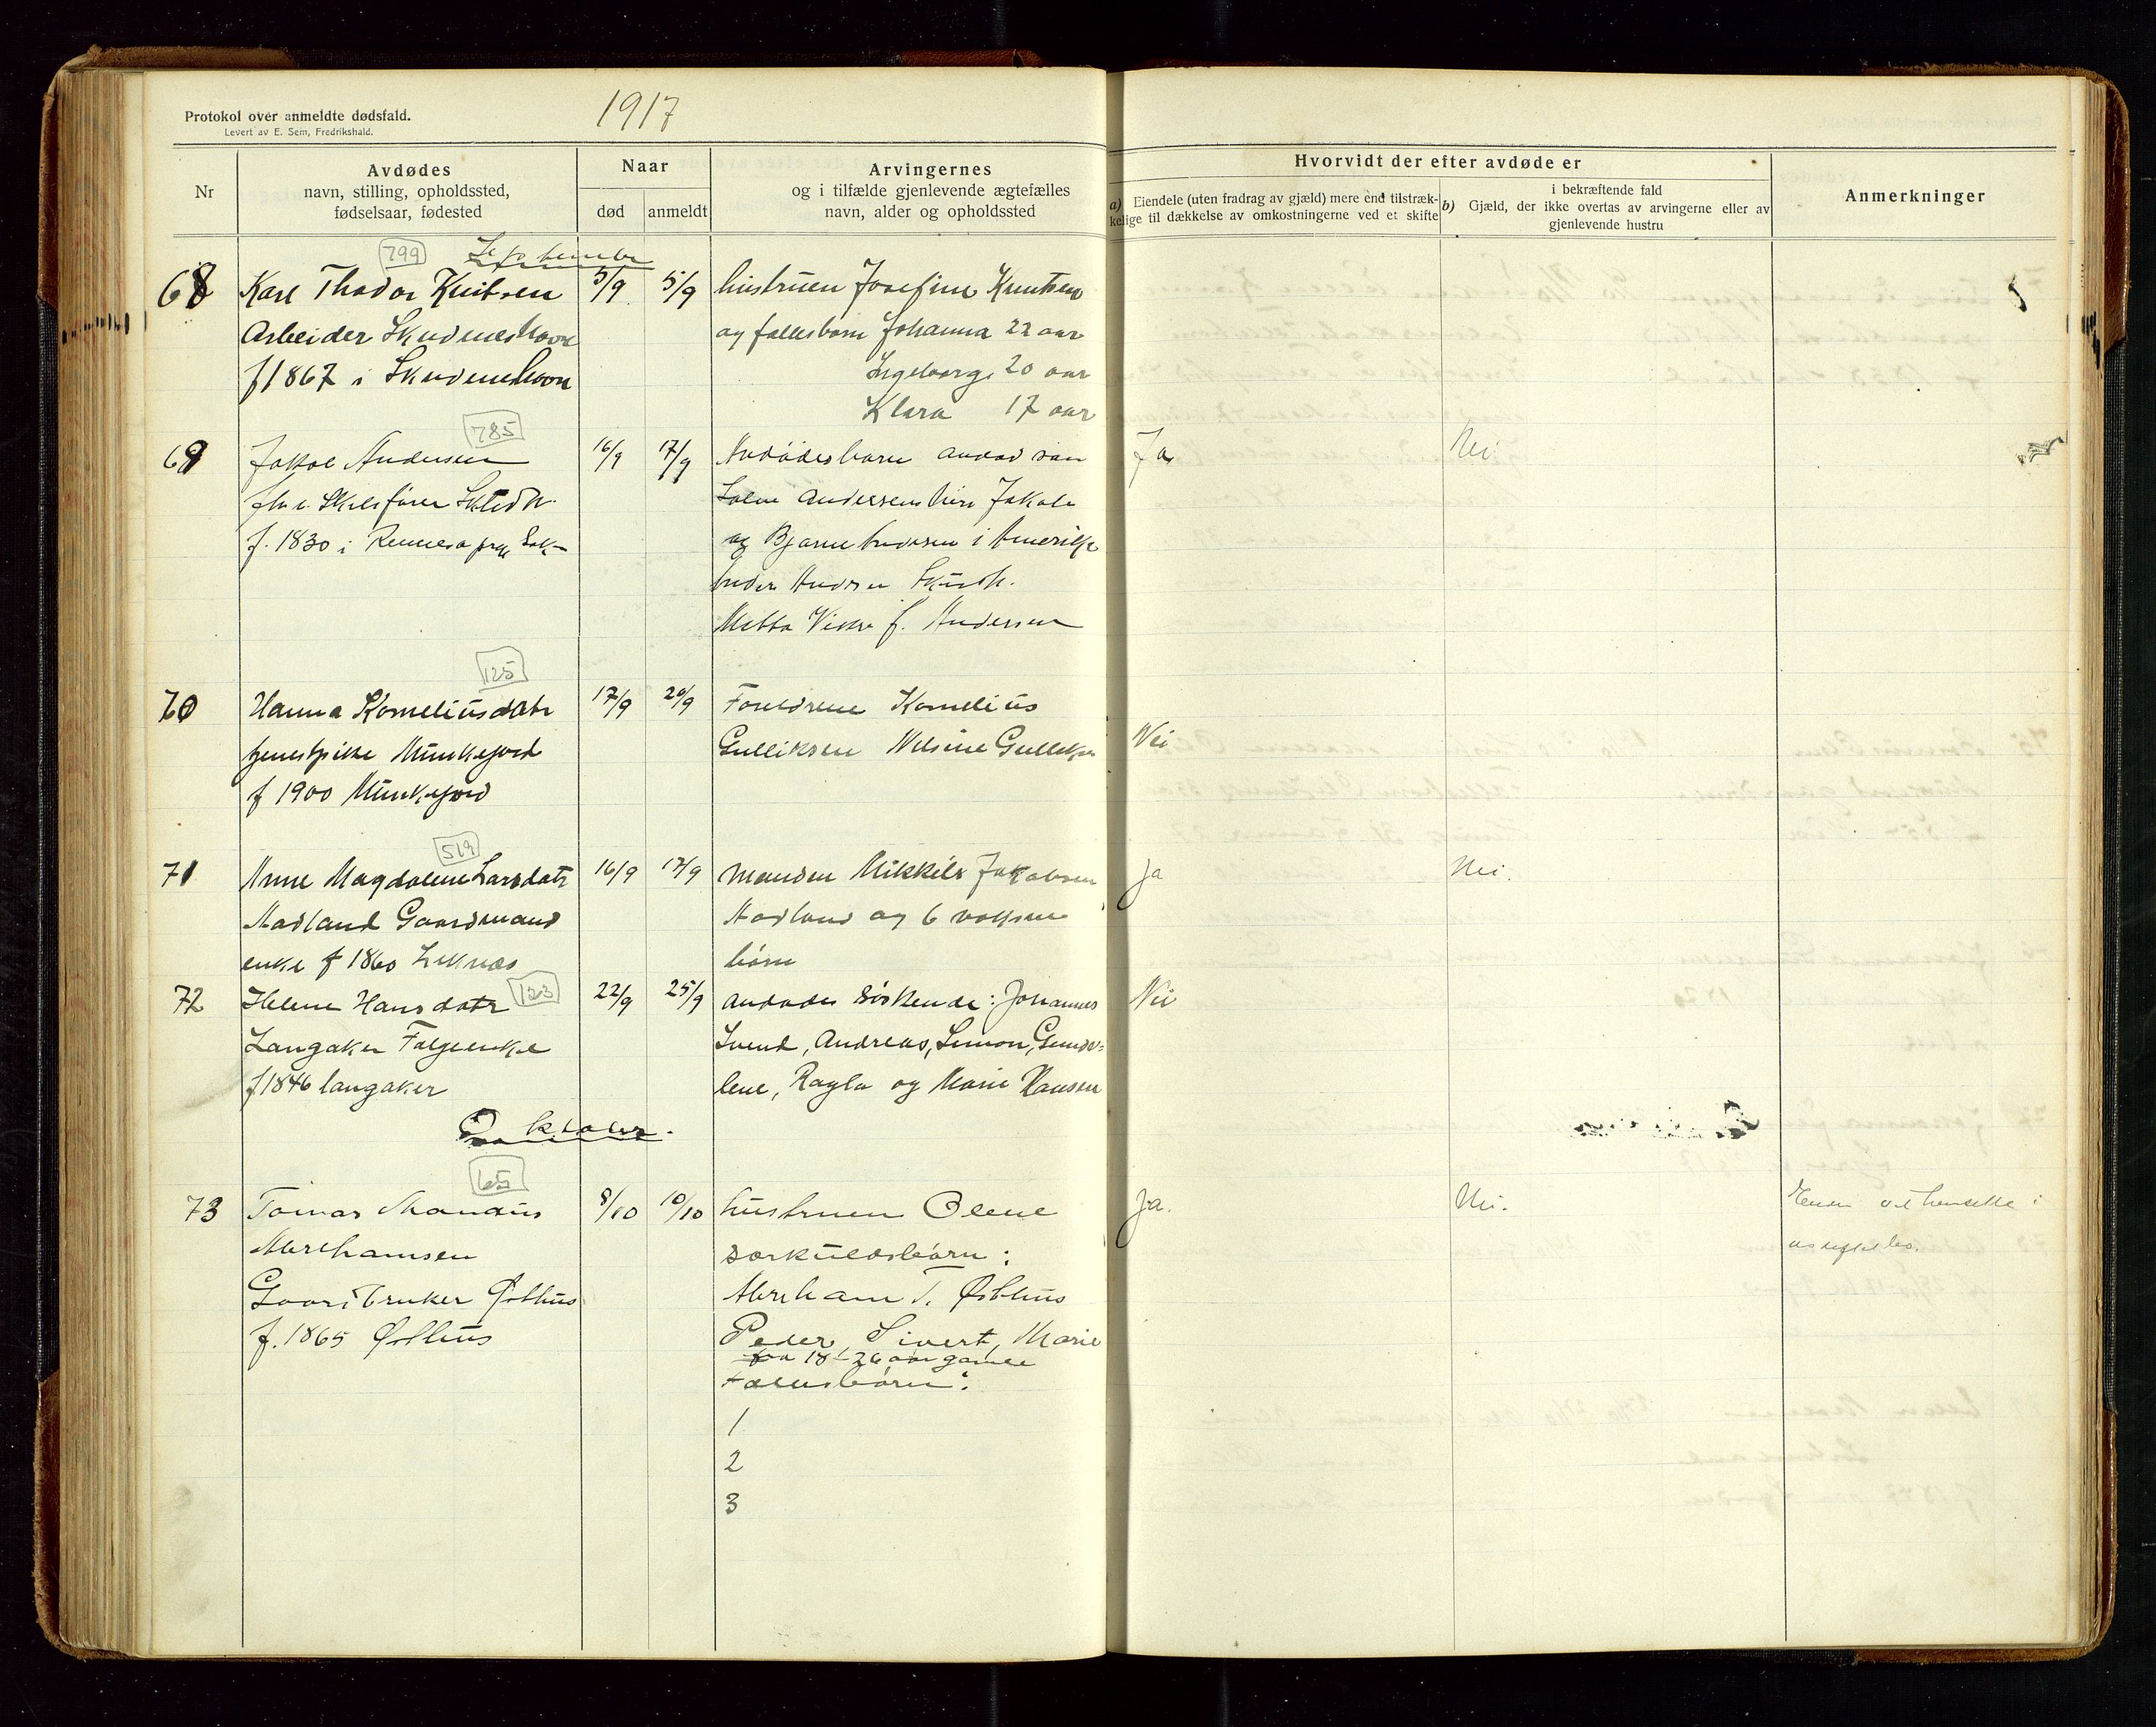 Protokol over anmeldte dødsfald.
Levert av E. Sem, Fredrikshald.
1917
Nr
Avdødes
navn, stilling, opholdssted,
fødselsaar, fødested
Naar
død
anmeldt
Arvingernes
og i tilfælde gjenlevende ægtefælles
navn, alder og opholdssted
Hvorvidt der efter avdøde er
a) Eiendele (uten fradrag av gjæld) mere end tilstræk-
kelige til dækkelse av omkostningerne ved et skifte
i bekræftende fald
b) Gjæld, der ikke overtas av arvingerne eller av
gjenlevende hustru
Anmerkninger
799
September
68 Karl Thodor Knutsen 5/9 5/9 hustruen Josefine Knutsen
Arbeider Skudeneshavn og fællesbørn Johanna 22 aar
f 1867 i Skudeneshavn Ingeborg 20 aar
Klara 17 aar
785
69 Jakob Andersen 16/9 17/9 Avdødes børn avdød søn Ja Nei
fhv. Skibsfører
f. 1830 i Rennesø
og Bjarne Andersen i Amerika
Andersen
f. Andersen
125
70 Hanna Korneliusdatr 17/9 20/9 Forældrene Kornelius
tjenestpike Munkejord Gulliksen Nilsine Nei
f 1900 Munkejord
519
71 Anne Magdalene Larsdatr 16/9 17/9 manden Mikkel Jakobsen Ja Nei.
Aadland Gaardmand Aadland og 6 voksne
enke f 1860 børn
123
72 Helene Hansdatr 22/9 25/9 avdødes søskende: Johannes Nei
Langaker Folgeenke Svend, Andreas, Simon,
f 1846 langaker lene, og Marie Hansen
Oktober.
65
73 Tomas Mandius 8/10 10/10 hustruen Olene Ja. Nei.
Abrehamsen særkuldsbørn:
Gaardbruker Østhus Abreham T. Østhus
f. 1865 Østhus Peder, Sivert, Marie
fra 18-26 aar gamle
Fællesbørn:
1
2
3